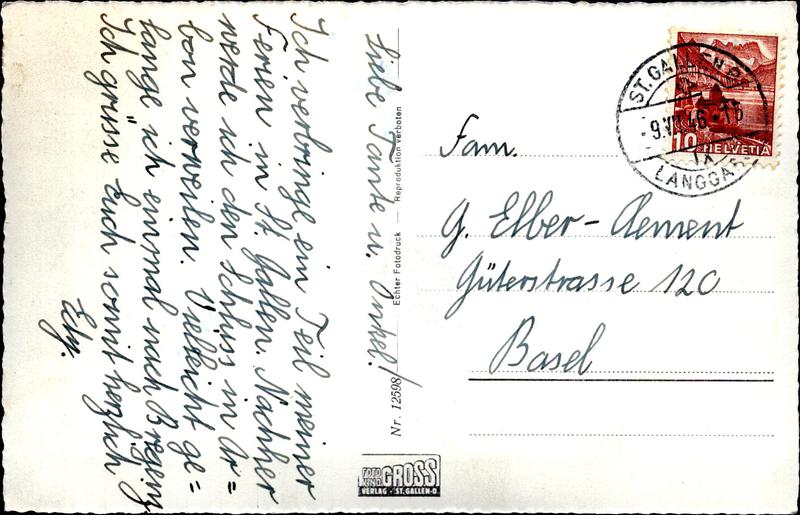 Liebe Tante u. Onkel!
Ich verbringe ein Teil meiner
Ferien in St. Gallen. Nachher
werde ich den Schluss in Ar=
bon verweilen. Vielleicht ge=
lange ich einmal nach Bregenz
Ich grüsse Euch somit herzlich
Nr. 12598
Echter Fotodruck — Reproduktion verboten
FOTO UND GROSS
VERLAG · ST. GALLEN-O
ST. GALLEN
LANGGASS
10 HELVETIA
Fam.
G. Elber-Clement
Güterstrasse 120
Basel